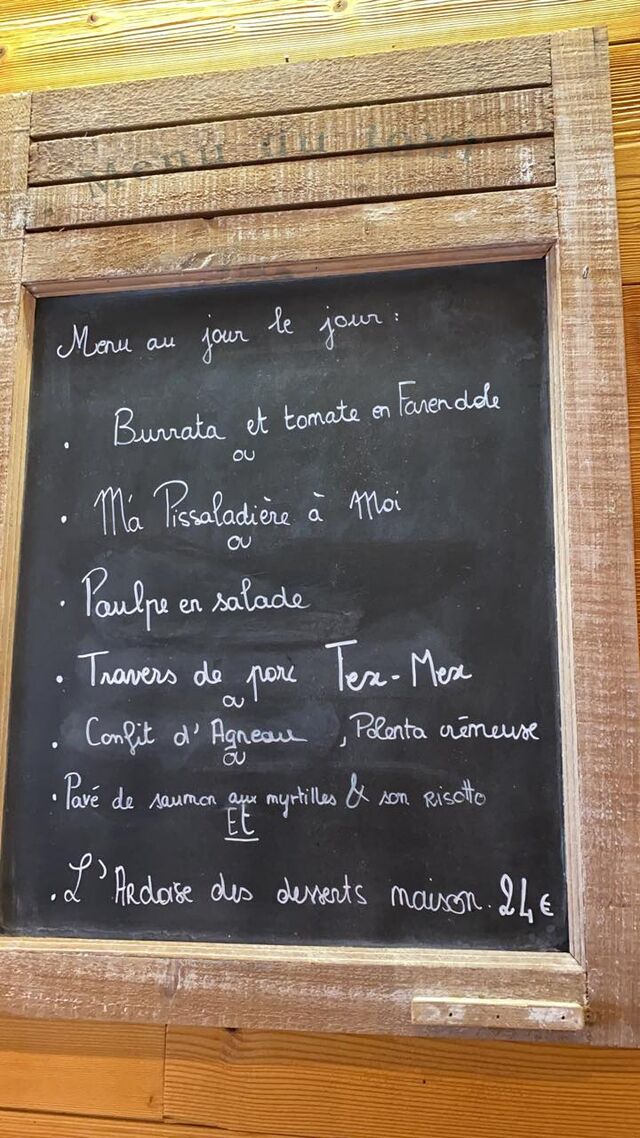 Menu du Jour
Menu au jour le jour :
. Burrata et tomate en Farendole
ou
. Ma Pissaladière à Moi
ou
. Poulpe en salade
. Travers de porc Tex-Mex
ou
. Confit d'Agneau, Polenta crémeuse
ou
. Pavé de saumon aux myrtilles & son RISOTTO
Et
. L'Ardoise des desserts maison. 24€